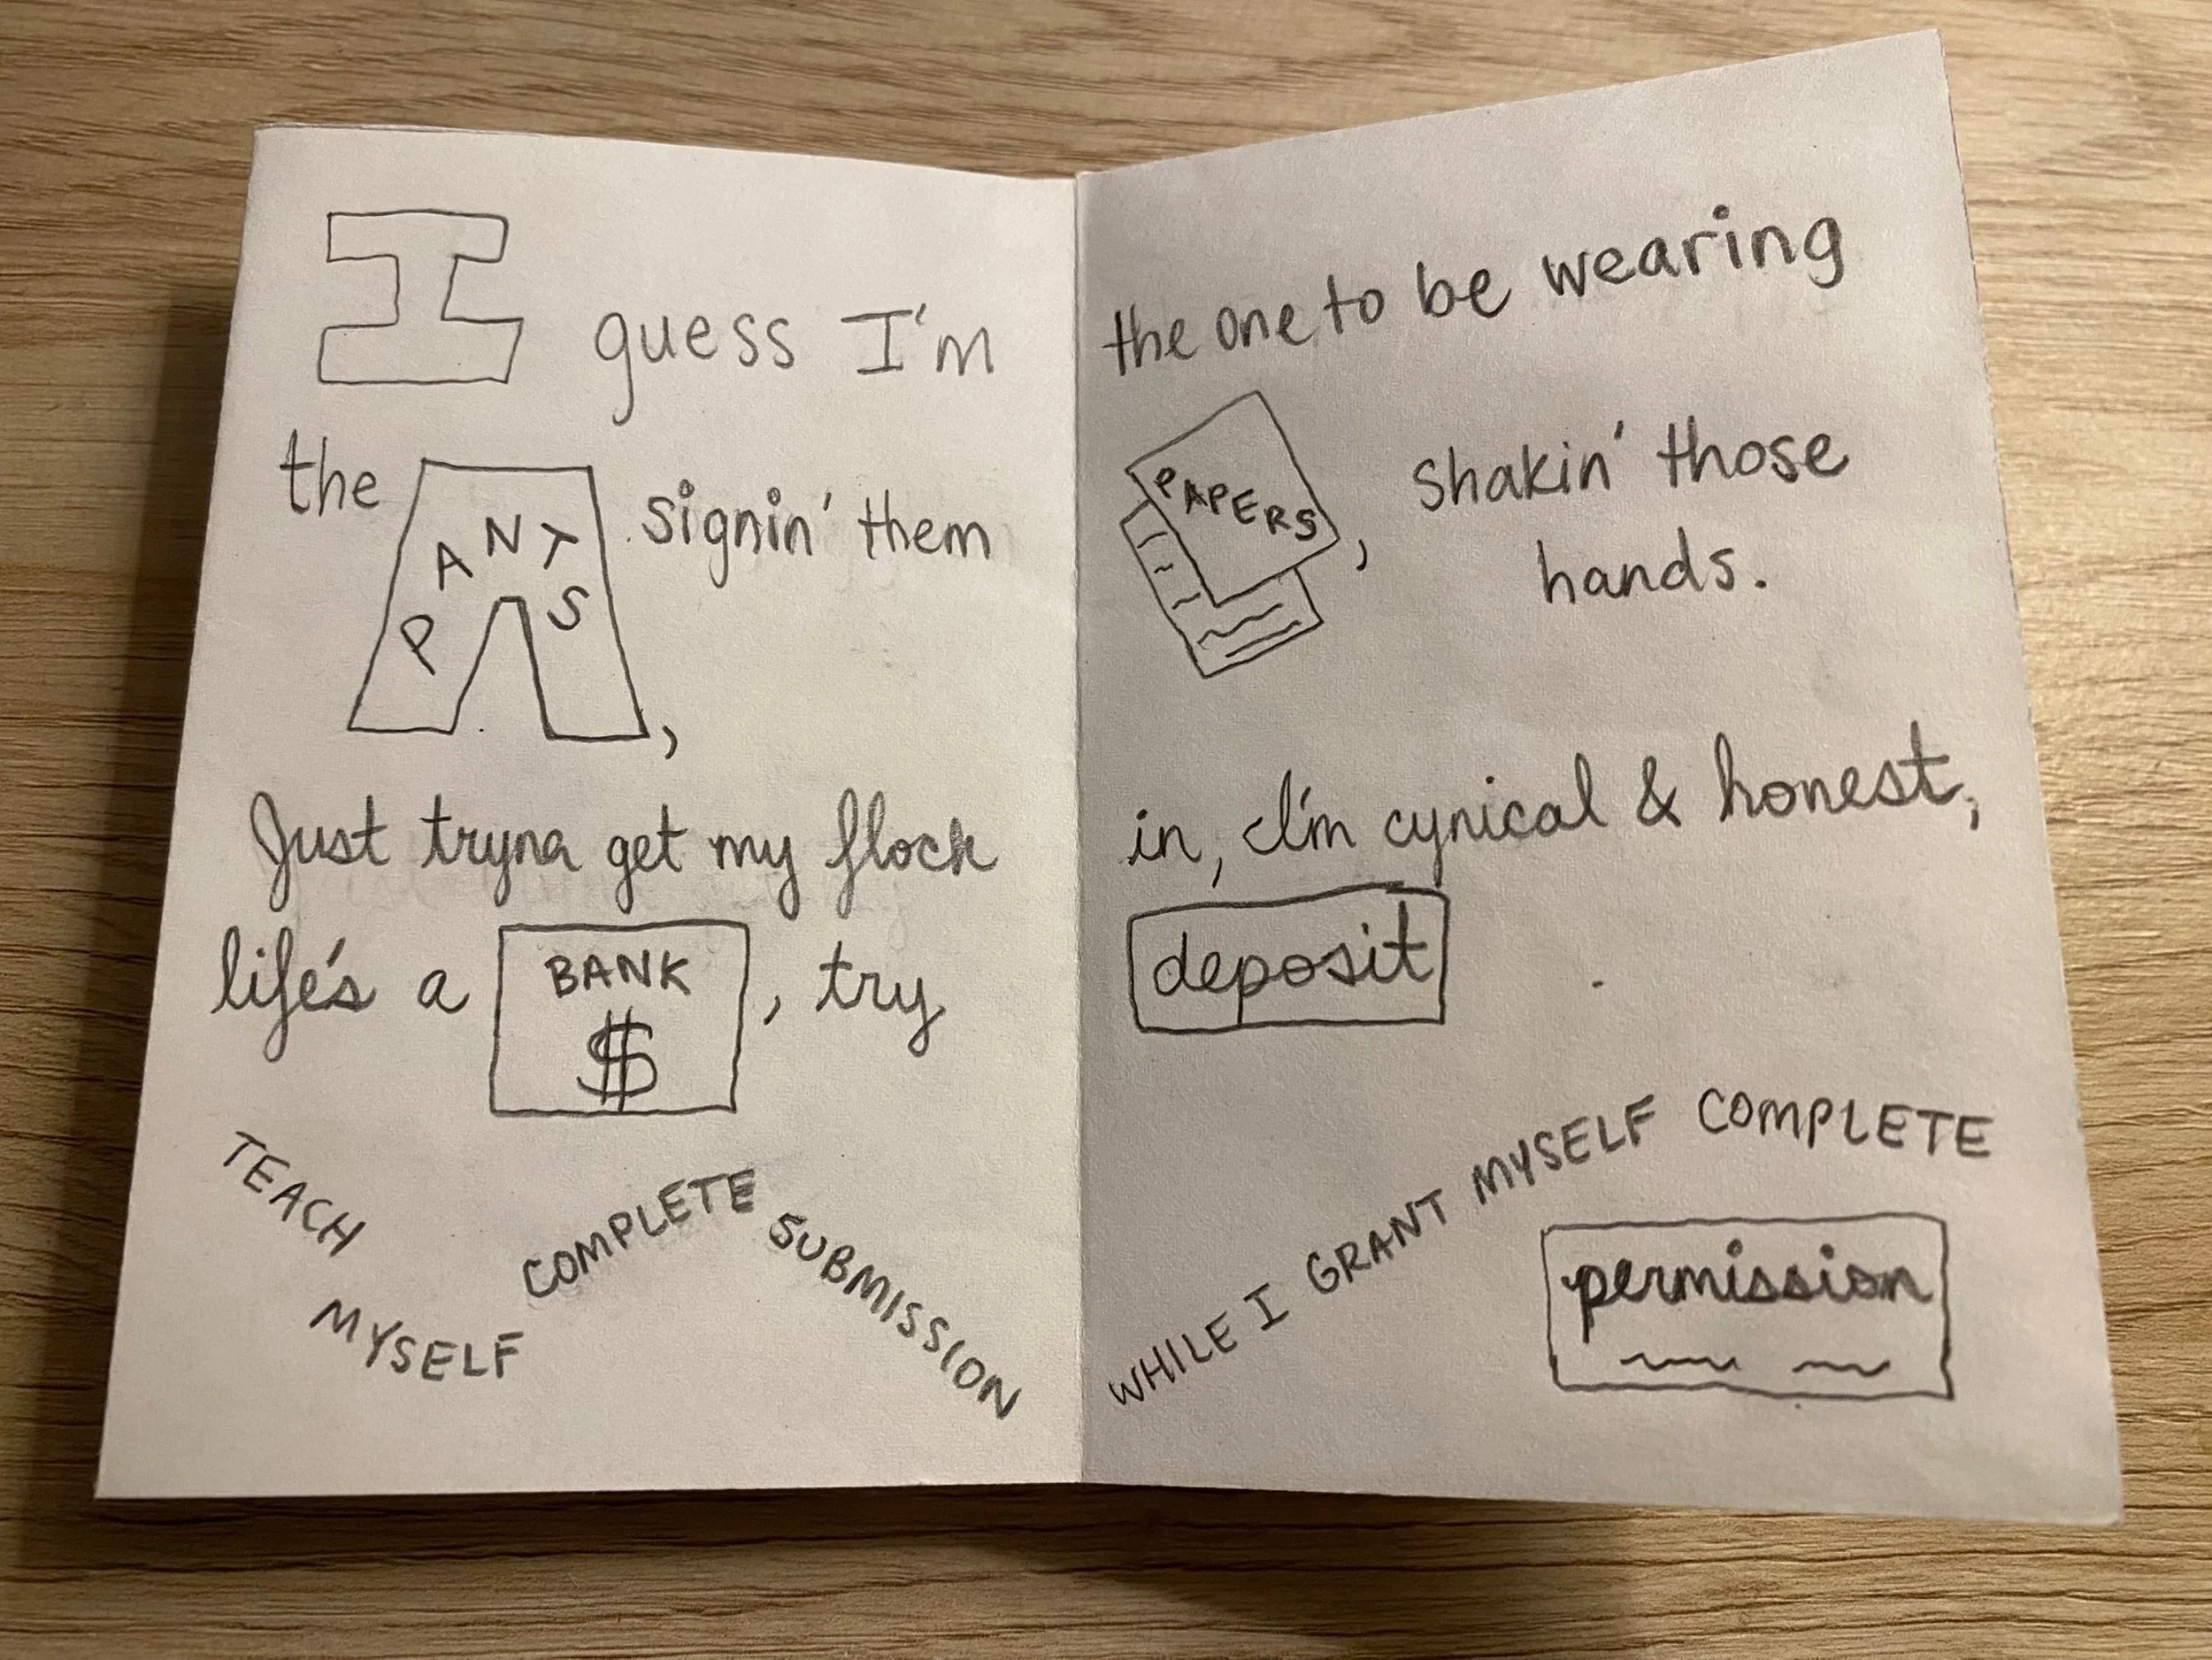 I guess I'm the one to be wearing
the PANTS, signin' them PAPERS, shakin' those
hands.
Just tryna get my flock in, I'm cynical & honest,
life's a BANK $, try deposit
TEACH MYSELF COMPLETE SUBMISSION WHILE I GRANT MYSELF COMPLETE
permission